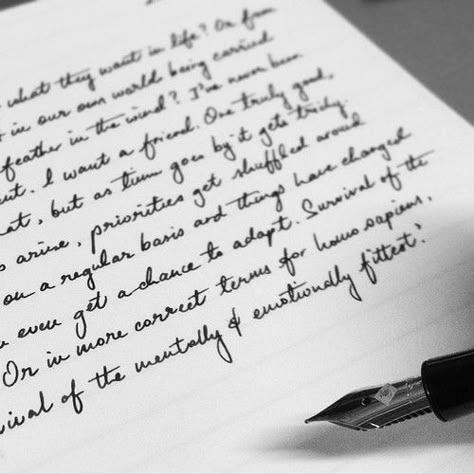 what they want in life? Or from
in our own world being carried
feather in the wind? I've never been
. I want a friend. One truly good,
, but as time goes by it gets tricky.
arise, priorities get shuffled around
on a regular basis and things have changed
even get a chance to adapt. Survival of the
Or in more correct terms for homo sapiens,
ival of the mentally & emotionally fittest?